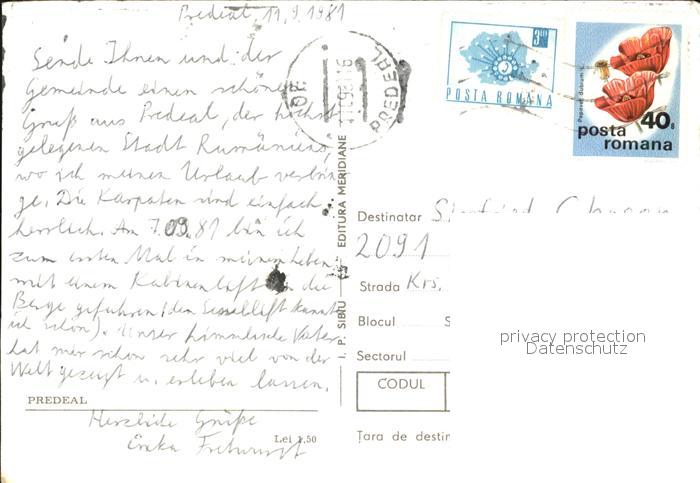 Predeal, 11.9.1981
Sende Ihnen und der
Gemeinde einen schönen
Gruß aus Predeal, der höchst
gelegenen Stadt Rumäniens,
wo ich meinen Urlaub verbrin
ge. Die Karpaten sind einfach
herrlich. Am 7.09.81 bin ich
zum ersten Mal in meinem Leben
mit einem Kabinenlift in die
Berge gefahren (den Sessellift kannte
ich schon). Unser himmlische Vater
hat mir schon sehr viel von der
Welt gezeigt u. erleben lassen.
PREDEAL
Herzliche Grüße
Erika
Lei 1,50
I. P. SIBIU
EDITURA MERIDIANE
PREDEAL
3.60
POSTA ROMANA
Papaver dubium L.
40 B
posta
romana
Destinatar Siegfried
2091
Strada Krs.
Blocul S
Sectorul
CODUL
Țara de destin
privacy protection
Datenschutz